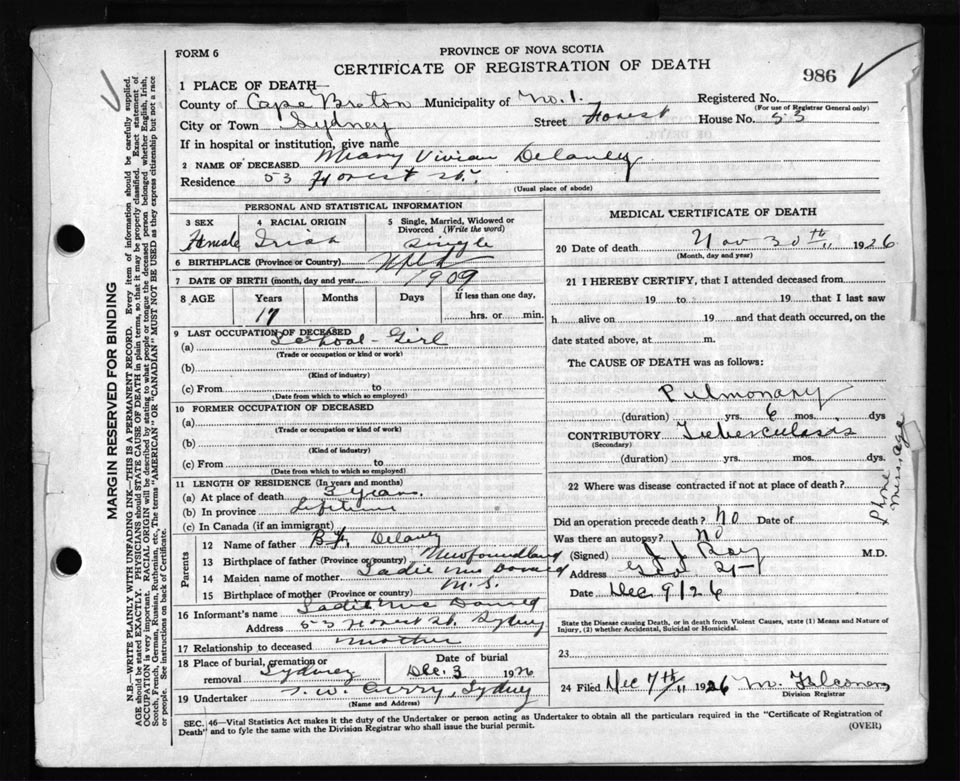 FORM 6
PROVINCE OF NOVA SCOTIA
CERTIFICATE OF REGISTRATION OF DEATH
986
1 PLACE OF DEATH—
County of Cape Breton Municipality of No. 1. Registered No.
(For use of Registrar General only)
City or Town Sydney Street Forest House No. 53
If in hospital or institution, give name
2 NAME OF DECEASED Meary Vivian Delaney
Residence 53 Forest St.
(Usual place of abode)
PERSONAL AND STATISTICAL INFORMATION
3 SEX 4 RACIAL ORIGIN 5 Single, Married, Widowed or Divorced (Write the word)
Female Irish Single
6 BIRTHPLACE (Province or Country) Nfld
7 DATE OF BIRTH (month, day and year) 1909
8 AGE Years Months Days If less than one day,
17 hrs. or min.
9 LAST OCCUPATION OF DECEASED
(a) School-Girl
(Trade or occupation or kind of work)
(b)
(Kind of industry)
(c) From to
(Date from which to which so employed)
10 FORMER OCCUPATION OF DECEASED
(a)
(Trade or occupation or kind of work)
(b)
(Kind of industry)
(c) From to
(Date from which to which so employed)
11 LENGTH OF RESIDENCE (In years and months)
(a) At place of death 3 years.
(b) In province Lifetime
(c) In Canada (if an immigrant)
Parents
12 Name of father Delaney
13 Birthplace of father (Province or country) Newfoundland
14 Maiden name of mother Sadie Mc Donald
15 Birthplace of mother (Province or country) N.S.
16 Informant's name Sadie Mc Donald
Address 53 Forest St. Sydney
17 Relationship to deceased Mother
18 Place of burial, cremation or removal Sydney Date of burial Dec. 3 1926
19 Undertaker W. Curry, Sydney
(Name and Address)
MEDICAL CERTIFICATE OF DEATH
20 Date of death Nov 30th 1926
(Month, day and year)
21 I HEREBY CERTIFY, that I attended deceased from
19 to 19 that I last saw
h alive on 19 and that death occurred, on the
date stated above, at m.
The CAUSE OF DEATH was as follows:
Pulmonary
(duration) yrs. 6 mos. dys
CONTRIBUTORY Tuberculosis
(Secondary)
(duration) yrs. mos. dys.
22 Where was disease contracted if not at place of death?
Phone message
Did an operation precede death? No Date of
Was there an autopsy? No
(Signed) J. J. Roy M.D.
Address
Date Dec 9/26
State the Disease causing Death, or in death from Violent Causes, state (1) Means and Nature of
Injury, (2) whether Accidental, Suicidal or Homicidal.
23
24 Filed Dec 7th 1926 M. Falconer
Division Registrar
SEC. 46—Vital Statistics Act makes it the duty of the Undertaker or person acting as Undertaker to obtain all the particulars required in the "Certificate of Registration of
Death" and to fyle the same with the Division Registrar who shall issue the burial permit.
(OVER)
MARGIN RESERVED FOR BINDING
N.B.—WRITE PLAINLY WITH UNFADING INK—THIS IS A PERMANENT RECORD. Every item of information should be carefully supplied.
AGE should be stated EXACTLY. PHYSICIANS should STATE CAUSE OF DEATH in plain terms, so that it may be properly classified. Exact statement of
OCCUPATION is very important. RACIAL ORIGIN will be described by stating to what people or tongue the deceased person belonged whether English, Irish,
Scotch, French, German, Russian, Ruthenian, etc., The terms "AMERICAN" OR "CANADIAN" MUST NOT BE USED as they express citizenship but not a race
or people. See instructions on back of Certificate.